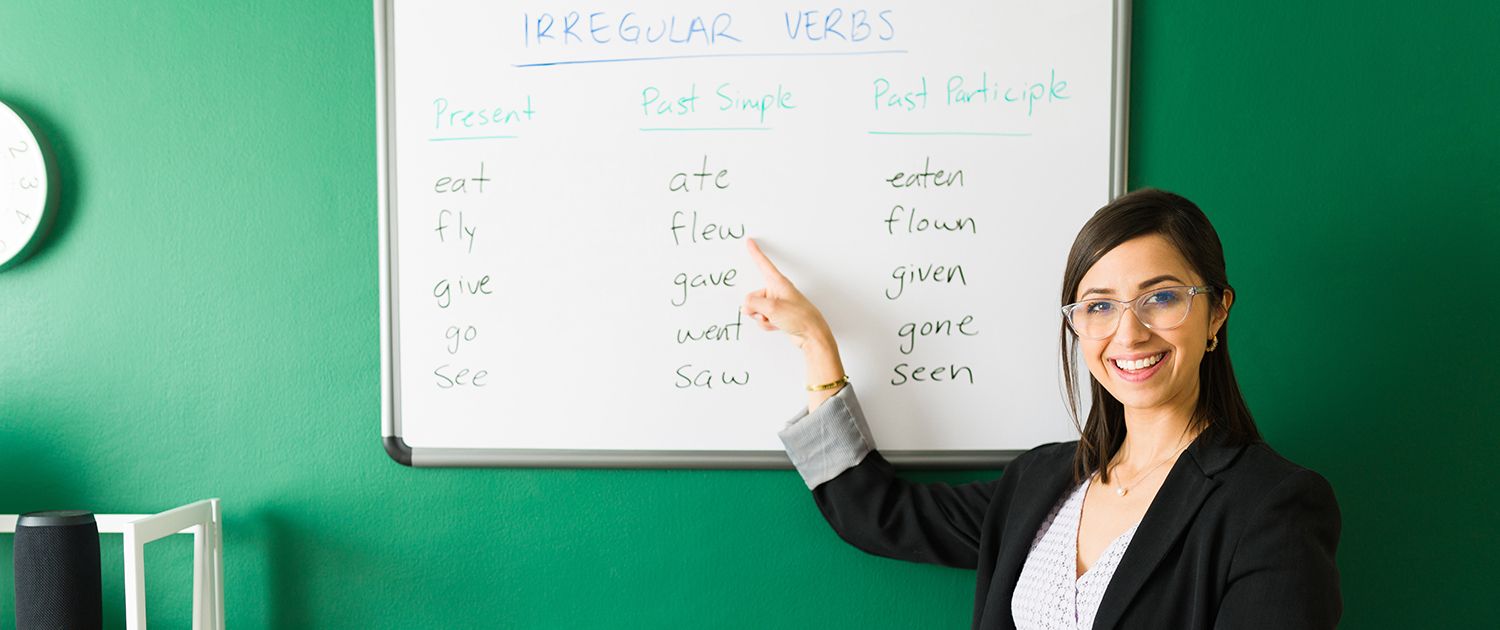 IRREGULAR VERBS
Present Past Simple Past Participle
eat ate eaten
fly flew flown
give gave given
go went gone
see saw seen
2
3
4